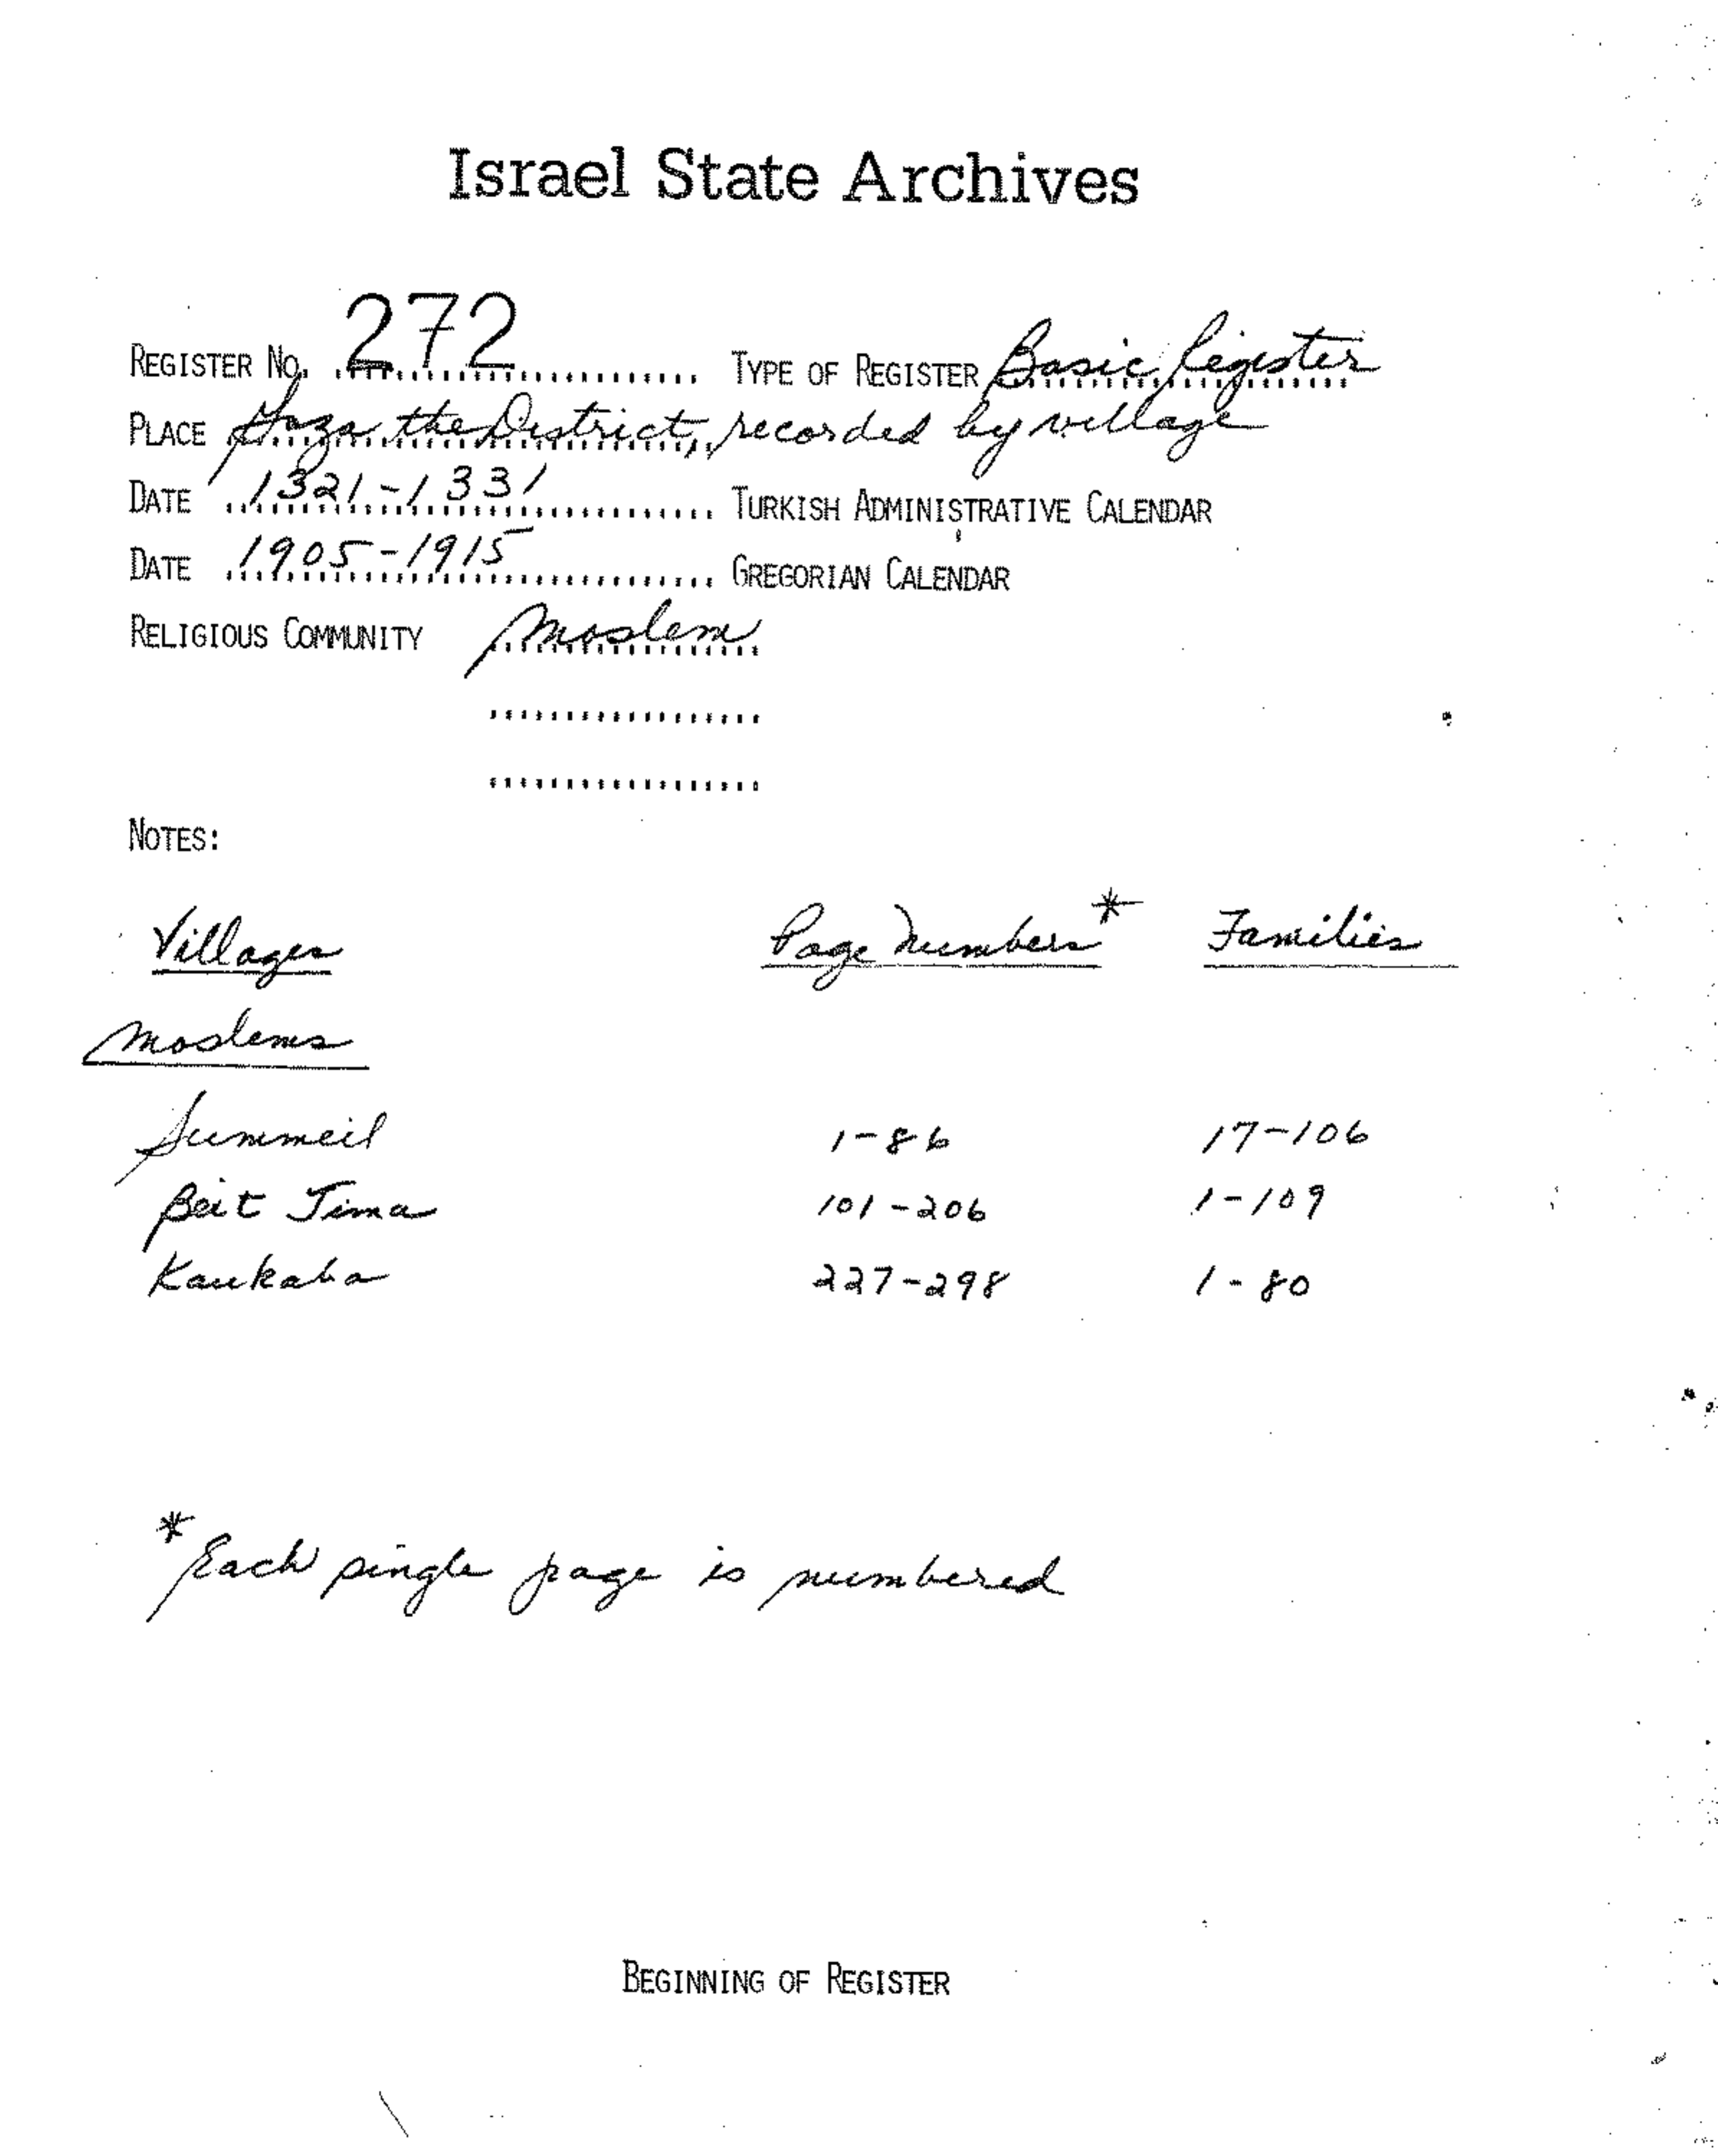 Israel State Archives
REGISTER NO. 272 TYPE OF REGISTER Basic Register
PLACE Gaza the District, recorded by village
DATE 1321-1331 TURKISH ADMINISTRATIVE CALENDAR
DATE 1905-1915 GREGORIAN CALENDAR
RELIGIOUS COMMUNITY Moslem
NOTES:
Villages Page Numbers* Families
Moslems
Summeil 1-86 17-106
Beit Jima 101-206 1-109
Kaukaba 227-298 1-80
* Each single page is numbered
BEGINNING OF REGISTER